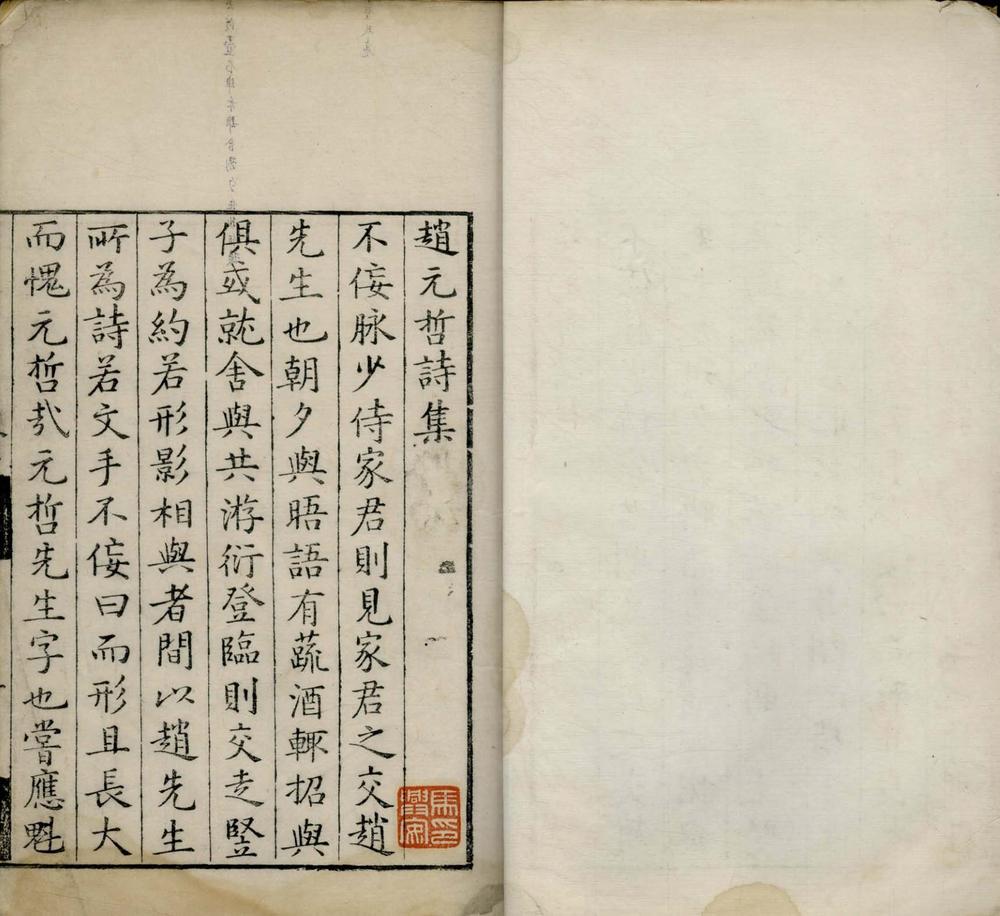 趙元哲詩集
不佞脉少侍家君則見家君之交趙
先生也朝夕與晤語有蔬酒輒招與
俱或就舍與共游衍登臨則交走豎
子為約若形影相與者間以趙先生
所為詩若文手不佞曰而形且長大
而愧元哲㢤元哲先生字也嘗應魁